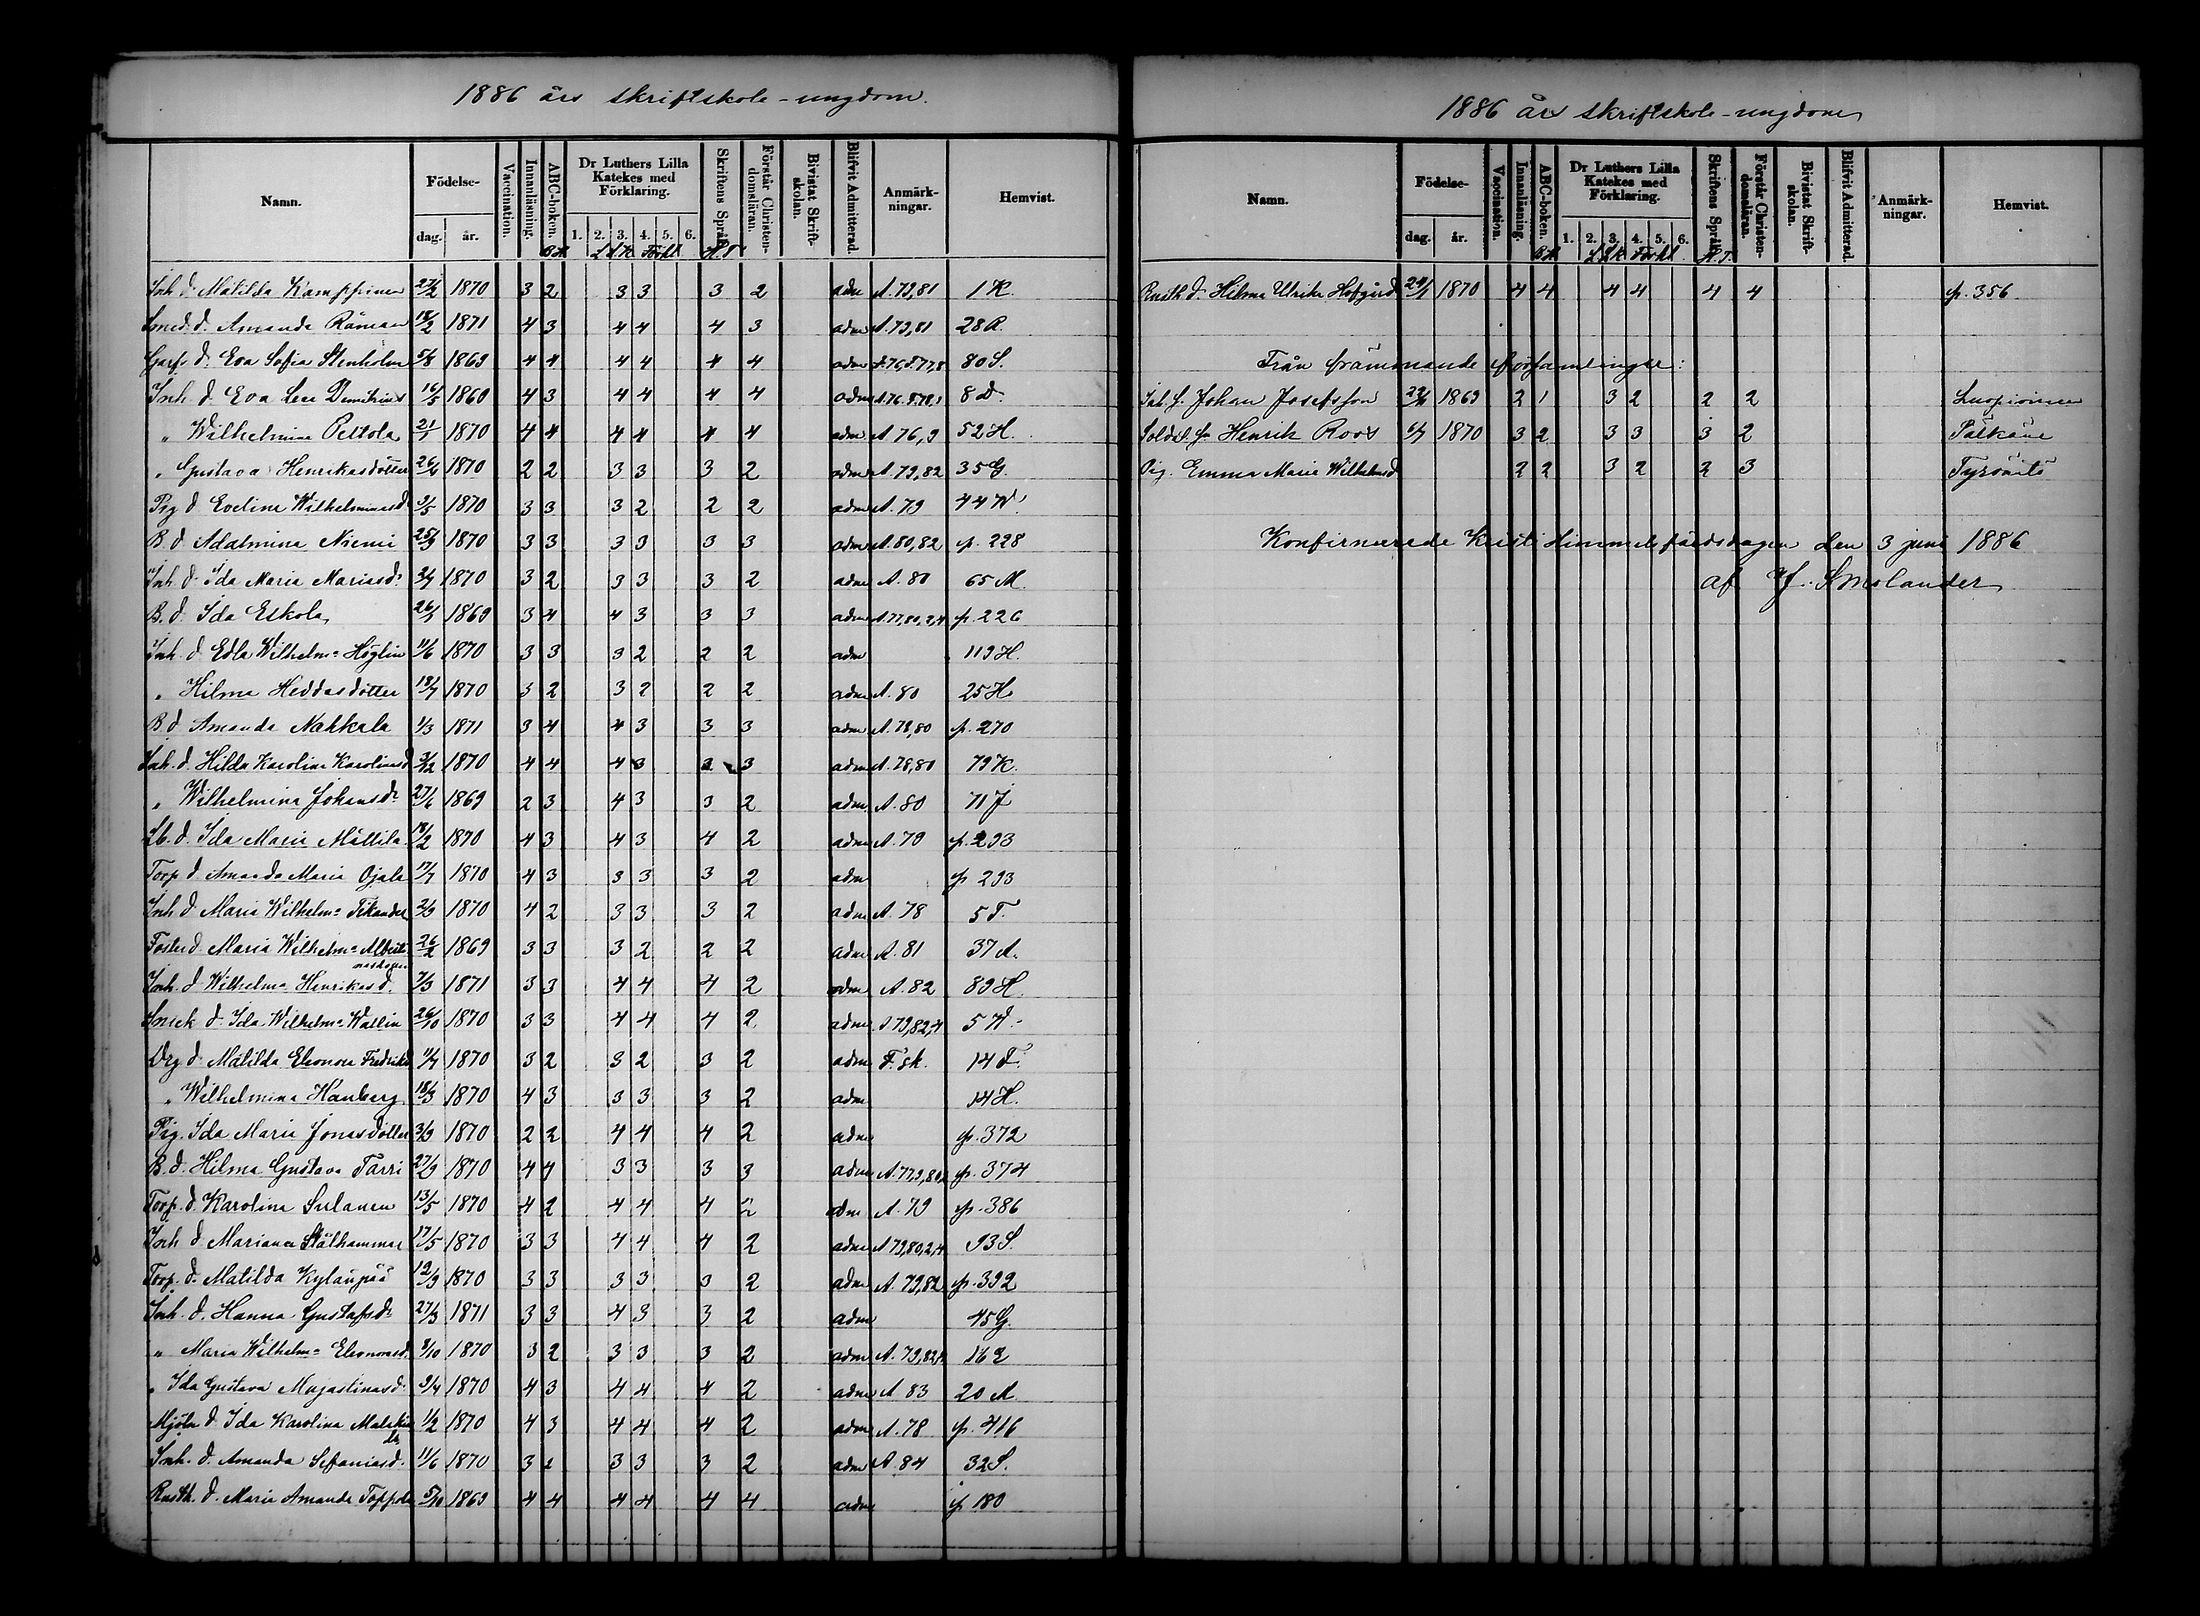 1886 års skriftskole-ungdom.
Namn. Födelse- dag. år. Vaccination. Innanläsning. ABC-boken. Dr Luthers Lilla Katekes med Förklaring. 1. 2. 3. 4. 5. 6. Skriftens Språk. Förstår Christendomsläran. Bivistat Skriftskolan. Blifvit Admitterad. Anmärkningar. Hemvist.
L.L.K. Förkl.
Inh. d. Matilda Kamppinen 27/2 1870 3 2 3 3 3 2 adm A. 79,81 1 K.
Smed. d. Amanda Råman 18/2 1871 4 3 4 4 4 3 adm A. 79,81 28 R.
Garf. d. Eva Sofia Stenholm 5/8 1869 4 4 4 4 4 4 adm 80 S.
Inh. d. Eva Lena 16/5 1860 4 3 4 4 4 4 adm 8 D.
„ Wilhelmina Peltola 21/1 1870 4 4 4 4 4 4 adm A 76,9 52 H.
„ Gustava Henriksdotter 26/4 1870 2 2 3 3 3 2 adm A. 79,82 35 G.
Pig d Evelina Wilhelminasd. 3/5 1870 3 3 3 2 2 2 adm A. 79 44 W.
B. d. Adalmina Niemi 25/9 1870 3 3 3 3 3 3 adm A. 80,82 p. 228
Inh. d. Ida Maria Mariasdr 2/7 1870 3 2 3 3 3 2 adm A. 80 65 M.
B. d. Ida Eskola 26/7 1869 3 4 4 3 3 3 adm A. 77,80,2,4 p. 226
Inh. d. Edla Wilhelma Höglin 11/6 1870 3 3 3 2 2 2 adm 119 H.
„ Hilma Heddasdotter 18/7 1870 3 2 3 2 2 2 adm A. 80 25 H
B. d. Amanda Nahkala 1/3 1871 3 4 4 3 3 3 adm A. 78,80 p. 270
Inh. d. Hilda Karolina Karolinasd. 3/12 1870 4 4 4 3 3 3 adm A. 78,80 79 K.
„ Wilhelmina Johansdr 27/6 1869 2 3 4 3 3 2 adm A. 80 71 J
Lb. d. Ida Maria Mattila 18/2 1870 4 3 4 3 4 2 adm A. 79 p. 293
Torp d. Amanda Maria Ojala 17/7 1870 4 3 3 3 3 2 adm p 293
Inh d. Maria Wilhelma Tikander 2/9 1870 4 2 3 3 3 2 adm A. 78 5 T.
Foster d. Maria Wilhelma 26/2 1869 3 3 3 2 2 2 adm A. 81 37 A.
Inh. d Wilhelma Henriksd. 7/3 1871 3 3 4 4 4 2 adm A. 82 89 H.
Snick d. Ida Wilhelma Wallin 26/10 1870 3 3 4 4 4 2 adm A 79,82,4 5 W.
Drg d. Matilda Eleonora Fredriksd. 1/7 1870 3 2 3 2 3 2 adm F. sk. 14 F.
„ Wilhelmina Hanberg 18/3 1870 4 3 3 3 3 2 adm 14 H.
Pig. Ida Maria Jonasdotter 3/9 1870 2 2 4 4 4 2 adm p. 372
B. d. Hilma Gustava Tarri 27/9 1870 4 4 3 3 3 3 adm p. 374
Torp. d. Karolina Sulanen 13/5 1870 4 2 4 4 4 2 adm A. 79 p. 386
Inh. d. Mariana Stålhammar 17/5 1870 3 3 4 4 4 2 adm A 79,80,2,4 93 S.
Torp. d. Matilda Kylänpää 12/9 1870 3 3 3 3 3 2 adm A. 79,82 p. 392
Inh. d. Hanna Gustafsdr 27/3 1871 3 3 4 3 3 2 adm 45 G.
„ Maria Wilhelma Eleonorasd. 9/10 1870 3 2 3 3 3 2 adm A. 79,82,4 16 E
„ Ida Gustava Majastinasd. 3/4 1870 4 3 4 4 4 2 adm A 83 20 M
Mjöln d. Ida Karolina 1/2 1870 4 3 4 4 4 2 adm A. 78 p. 416
Inh. d. Amanda Sefaniasd. 11/6 1870 3 2 3 3 3 2 adm A 84 32 S.
Rusth. d. Maria Amanda Toppola 5/10 1869 4 4 4 4 4 4 adm p 180
1886 års skriftskole-ungdom
Namn. Födelse- dag. år. Vaccination. Innanläsning. ABC-boken. Dr Luthers Lilla Katekes med Förklaring. 1. 2. 3. 4. 5. 6. Skriftens Språk. Förstår Christendomsläran. Bivistat Skriftskolan. Blifvit Admitterad. Anmärkningar. Hemvist.
L.L.K. Förkl.
Rusth. d. Hilma Ulrika Hofgård 29/1 1870 4 4 4 4 4 4 p. 356
Från främmande församlingar:
Inh. s. Johan Josefsson 1869 2 1 3 2 2 2 Luopioinen
Sold. s. Henrik Roos 6/7 1870 3 2 3 3 3 2 Pälkäne
Pig. Emma Maria Wilhelmsd 2 2 3 2 2 3 Tyrväntö
Konfirmerade Kristi Himmelsfärdsdagen den 3 juni 1886
af Smolander